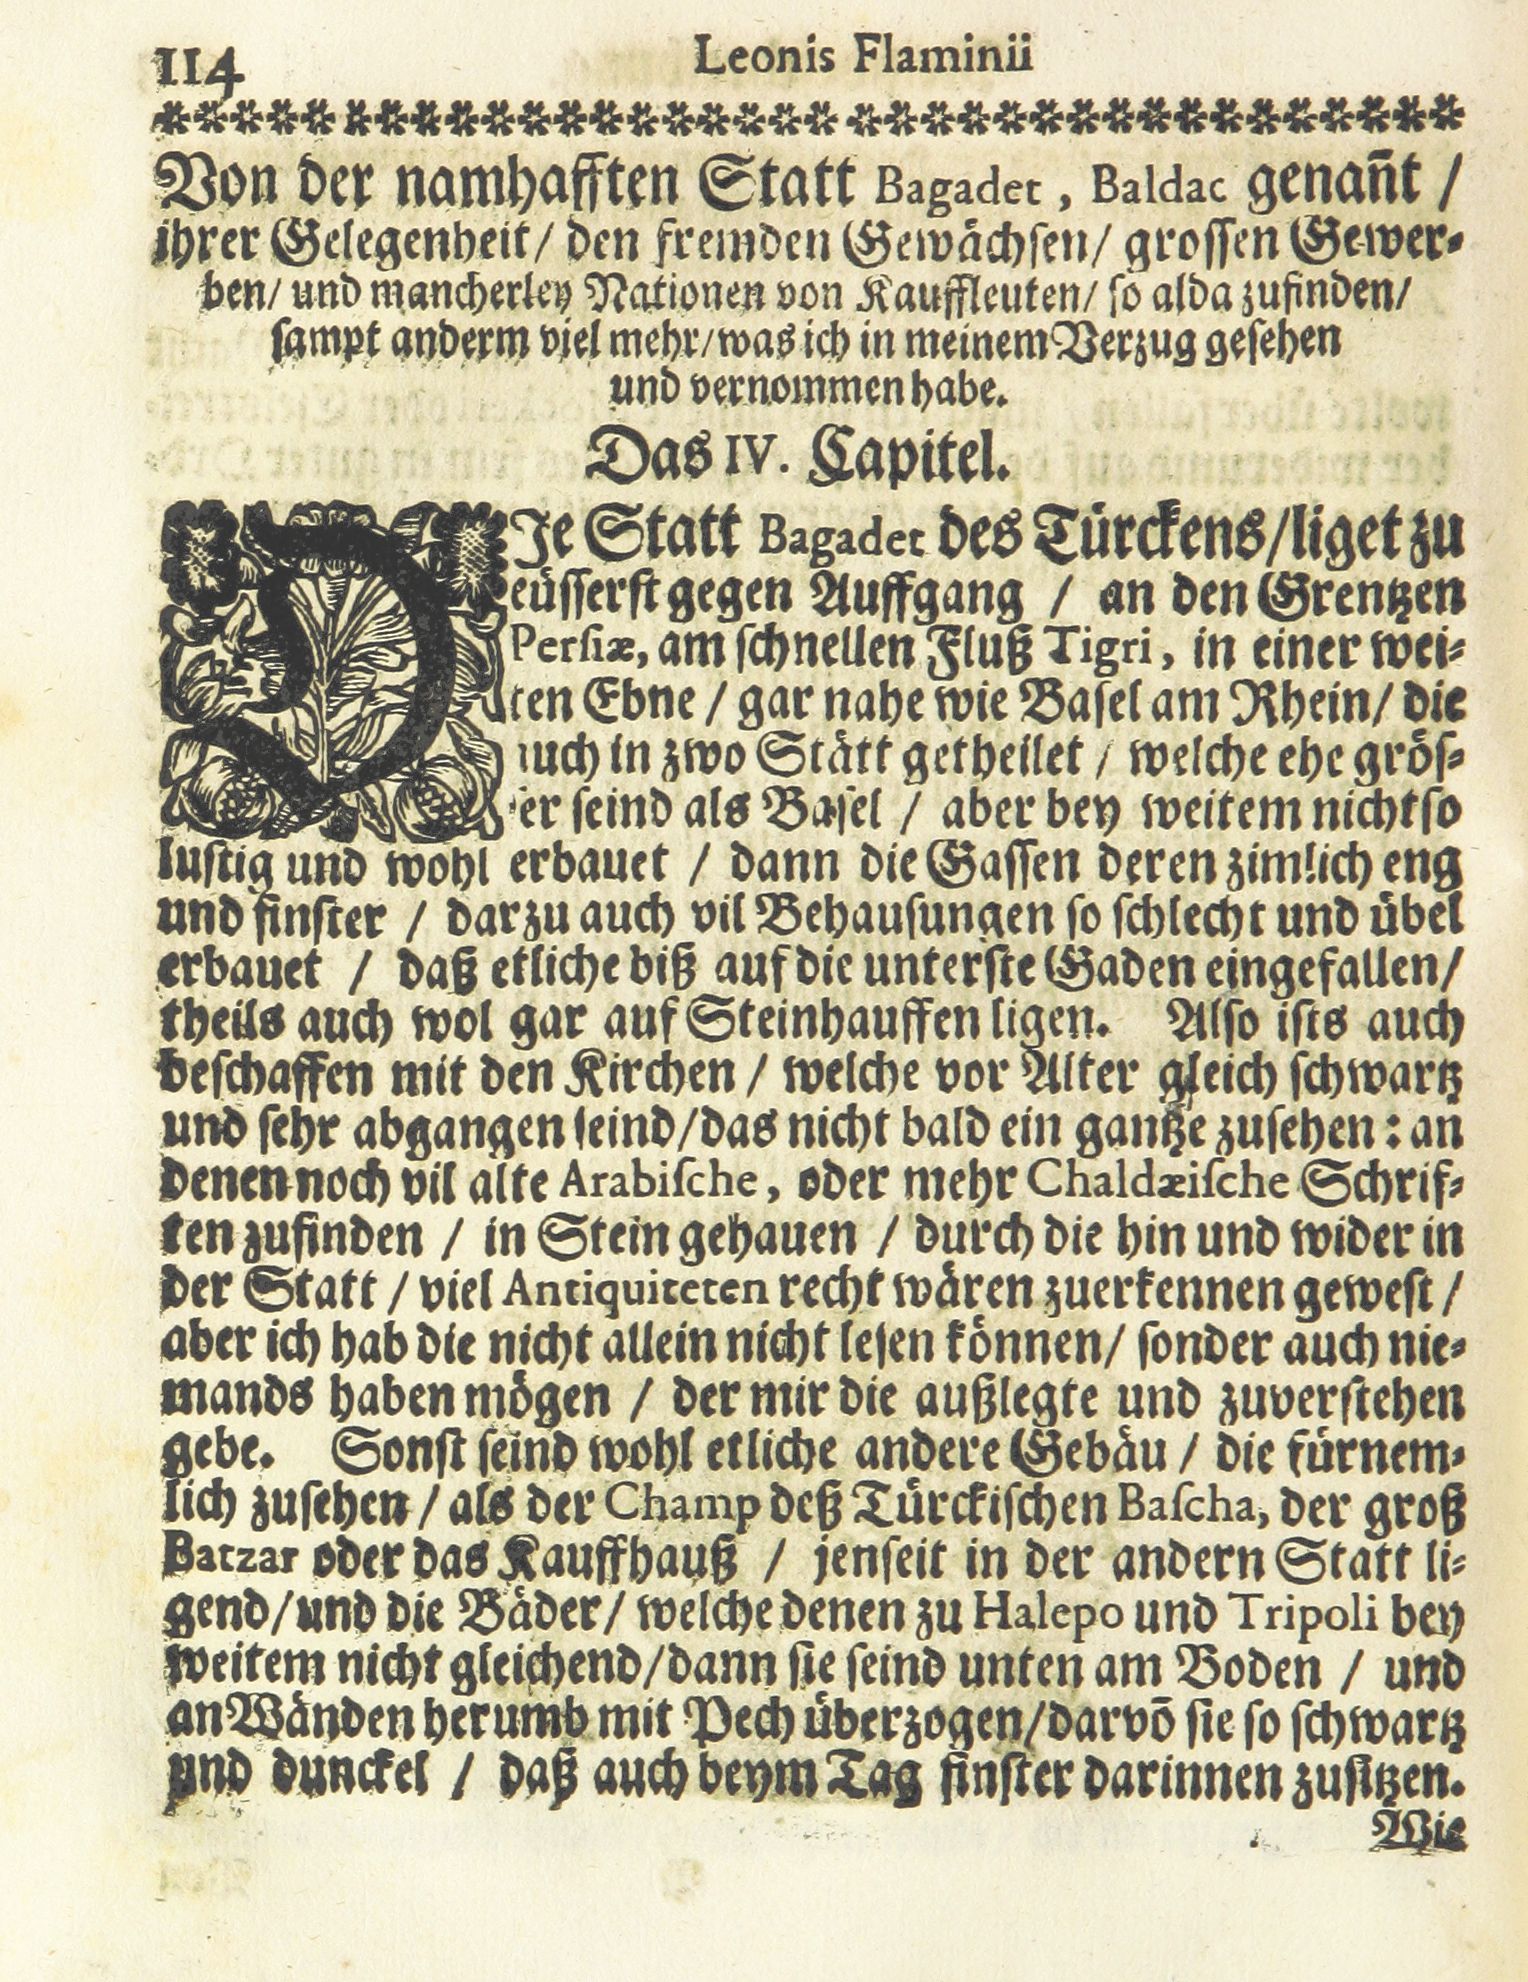 114 Leonis Flaminii
Von der namhafften Statt Bagadet, Baldac genañt /
ihrer Gelegenheit / den fremden Gewächsen / grossen Gewer-
ben / und mancherley Nationen von Kauffleuten / so alda zufinden /
sampt anderm viel mehr / was ich in meinem Verzug gesehen
und vernommen habe.
Das IV. Capitel.
DJe Statt Bagadet des Türckens / liget zu
eüsserst gegen Auffgang / an den Grentzen
Persiæ, am schnellen Fluß Tigri, in einer wei-
ten Ebne / gar nahe wie Basel am Rhein / die
auch in zwo Stätt getheilet / welche ehe grös-
ser seind als Basel / aber bey weitem nicht so
lustig und wohl erbauet / dann die Gassen deren zimlich eng
und finster / darzu auch vil Behausungen so schlecht und übel
erbauet / daß etliche biß auf die unterste Gaden eingefallen /
theils auch wol gar auf Steinhauffen ligen. Also ists auch
beschaffen mit den Kirchen / welche vor Alter gleich schwartz
und sehr abgangen seind / das nicht bald ein gantze zusehen: an
denen noch vil alte Arabische, oder mehr Chaldæische Schrif-
ten zufinden / in Stein gehauen / durch die hin und wider in
der Statt / viel Antiquiteten recht wären zuerkennen gewest /
aber ich hab die nicht allein nicht lesen können / sonder auch nie-
mands haben mögen / der mir die außlegte und zuverstehen
gebe. Sonst seind wohl etliche andere Gebäu / die fürnem-
lich zusehen / als der Champ deß Türckischen Bascha, der groß
Batzar oder das Kauffhauß / jenseit in der andern Statt li-
gend / und die Bäder / welche denen zu Halepo und Tripoli bey
weitem nicht gleichend / dann sie seind unten am Boden / und
an Wänden herumb mit Pech überzogen / darvõ sie so schwartz
und dunckel / daß auch beym Tag finster darinnen zusitzen.
Wie